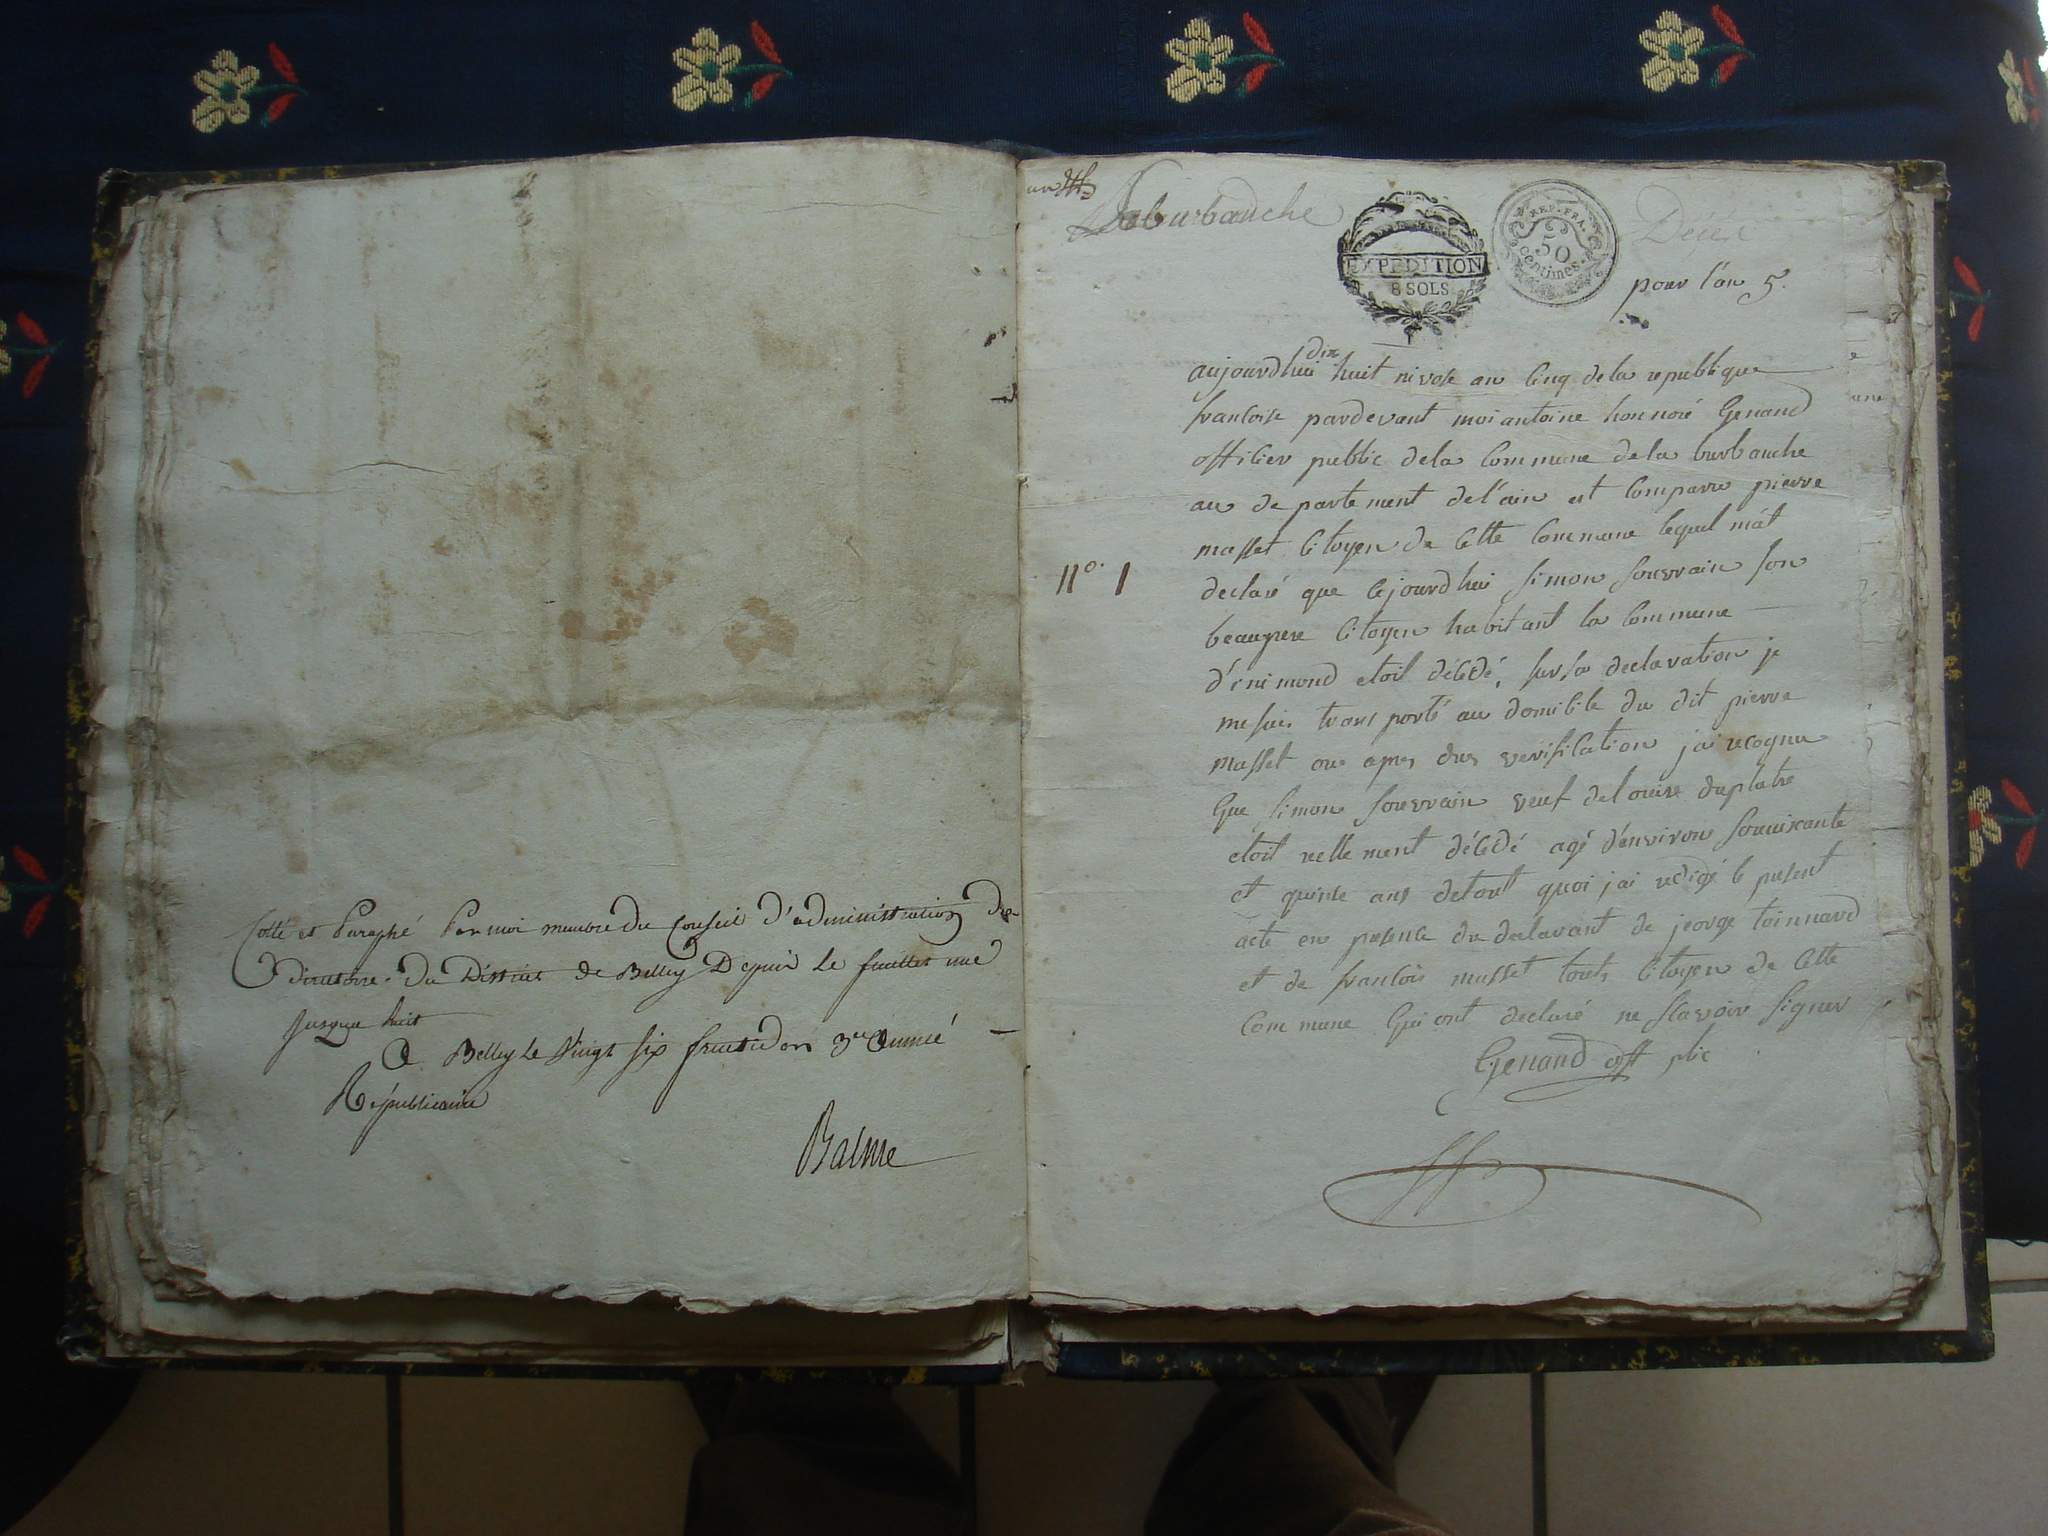 Cotté et Paraphé Par moi membre du Conseil d'administration du
directoire du District de Belley Depuis le feuillet une
jusqua huit
A Belley le Vingt six fructidor 3me année
Républicaine
Balme
un
Laburbanche
EXPEDITION
8 SOLS
REP. FRA.
50
centimes
Décès
pour l'an 5.
aujourdhui dix huit nivose an cinq de la republique
francoise pardevant moi antoine honnoré Genand
officier public dela Commune dela burbanche
au departement del'ain est Comparu pierre
masset Citoyen de Cette Commune lequel m'at
declaré que Cejourdhui simon souvrain son
beaupere Citoyen habitant la Commune
d'inimond etoit décédé, sur sa declaration je
me suis transporté au domicile du dit pierre
masset ou apres dus verification j'ai recognu
Que simon souvrain veuf de louise duplatre
etoit reellement décédé agé d'environ souixante
et quinse ans detout quoi j'ai redigé le present
acte en presence du declarant de jeorge toinnard
et de francois masset touts Citoyen de Cette
Commune Qui ont declaré ne scavoir signer
Genand off plic
N° 1